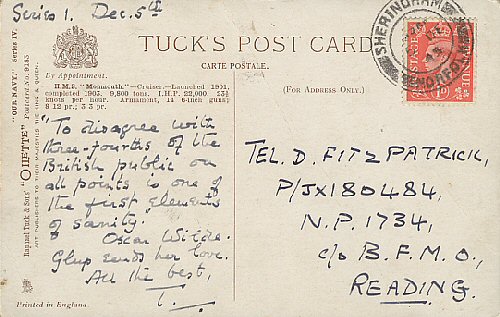 Series 1. Dec. 5th
TUCK'S POST CARD
CARTE POSTALE.
By Appointment.
(FOR ADDRESS ONLY.)
H.M.S. "Monmouth"—Cruiser—Launched 1901,
completed 1903. 9,800 tons. I.H.P. 22,000 23½
knots per hour. Armament, 14 6-inch guns;
8 12 pr.; 3 3 pr.
"To disagree with
three-fourths of the
British public on
all points is one of
the first elements
of sanity."
Oscar Wilde.
Glup sends her love.
All the best,
T.
Printed in England.
"OUR NAVY." SERIES IV.
Postcard No.
Raphael Tuck & Sons' "OILETTE"
ART PUBLISHERS TO THEIR MAJESTIES THE KING & QUEEN.
SHERINGHAM
NORFOLK
TEL. D. FITZPATRICK,
P/JX180484,
N.P. 1734,
c/o B.F.M.O,
READING.